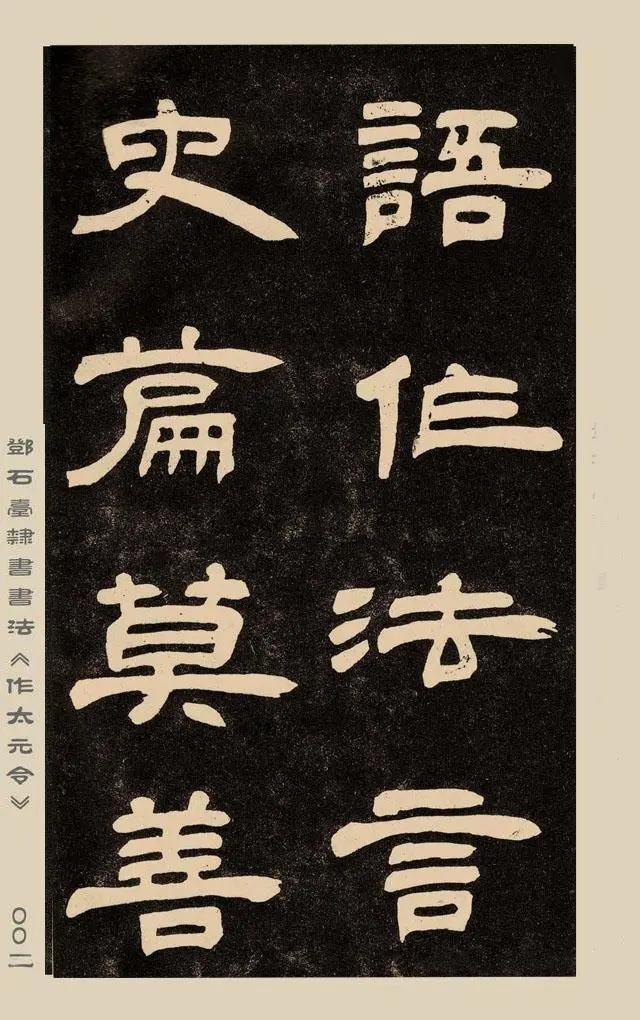 語作法言
史篇莫善
鄧石臺隸書書法《作太元令》
〇〇二